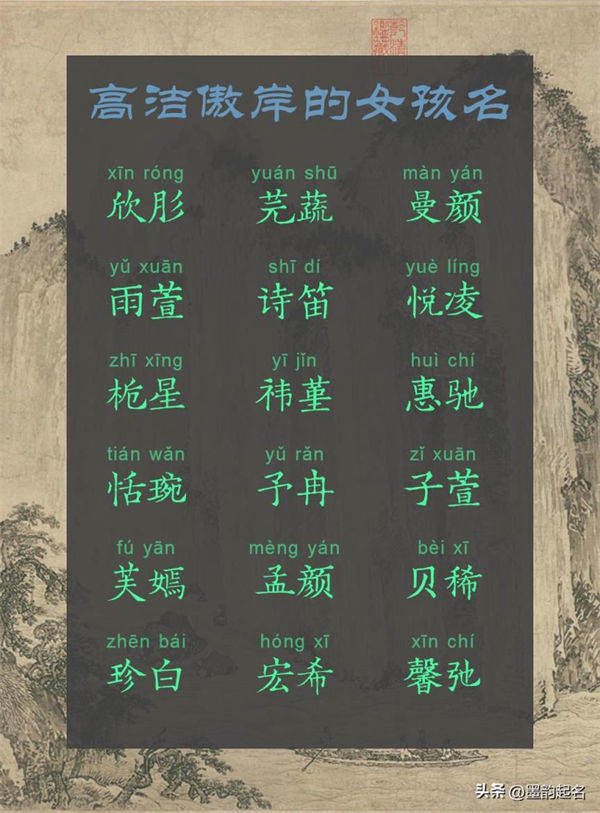 高洁傲岸的女孩名
xīn róng yuán shū màn yán
欣肜 芫蔬 曼颜
yǔ xuān shī dí yuè líng
雨萱 诗笛 悦凌
zhī xīng yī jǐn huì chí
栀星 祎堇 惠驰
tián wǎn yǔ rǎn zǐ xuān
恬琬 予冉 子萱
fú yān mèng yán bèi xī
芙嫣 孟颜 贝稀
zhēn bái hóng xī xīn chí
珍白 宏希 馨弛
头条 @墨韵起名